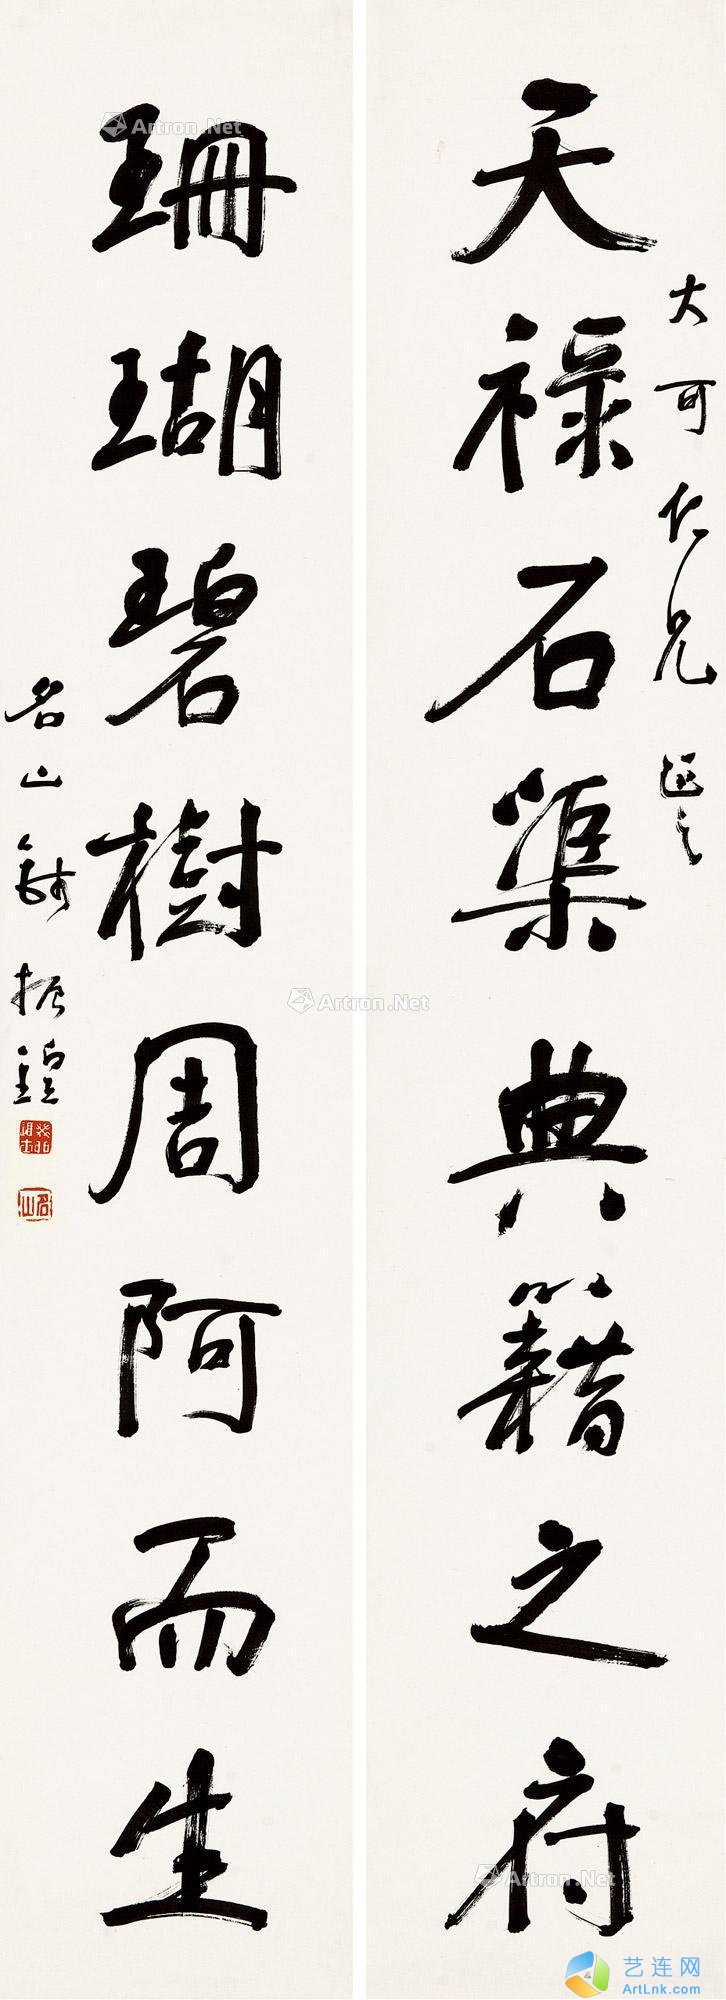 天禄石渠典籍之府
大可仁兄正之
珊瑚碧樹周阿而生
名山錢振鍠
名山
Artron.Net
Artron.Net
Artron.Net
艺连网
ArtLnk.com